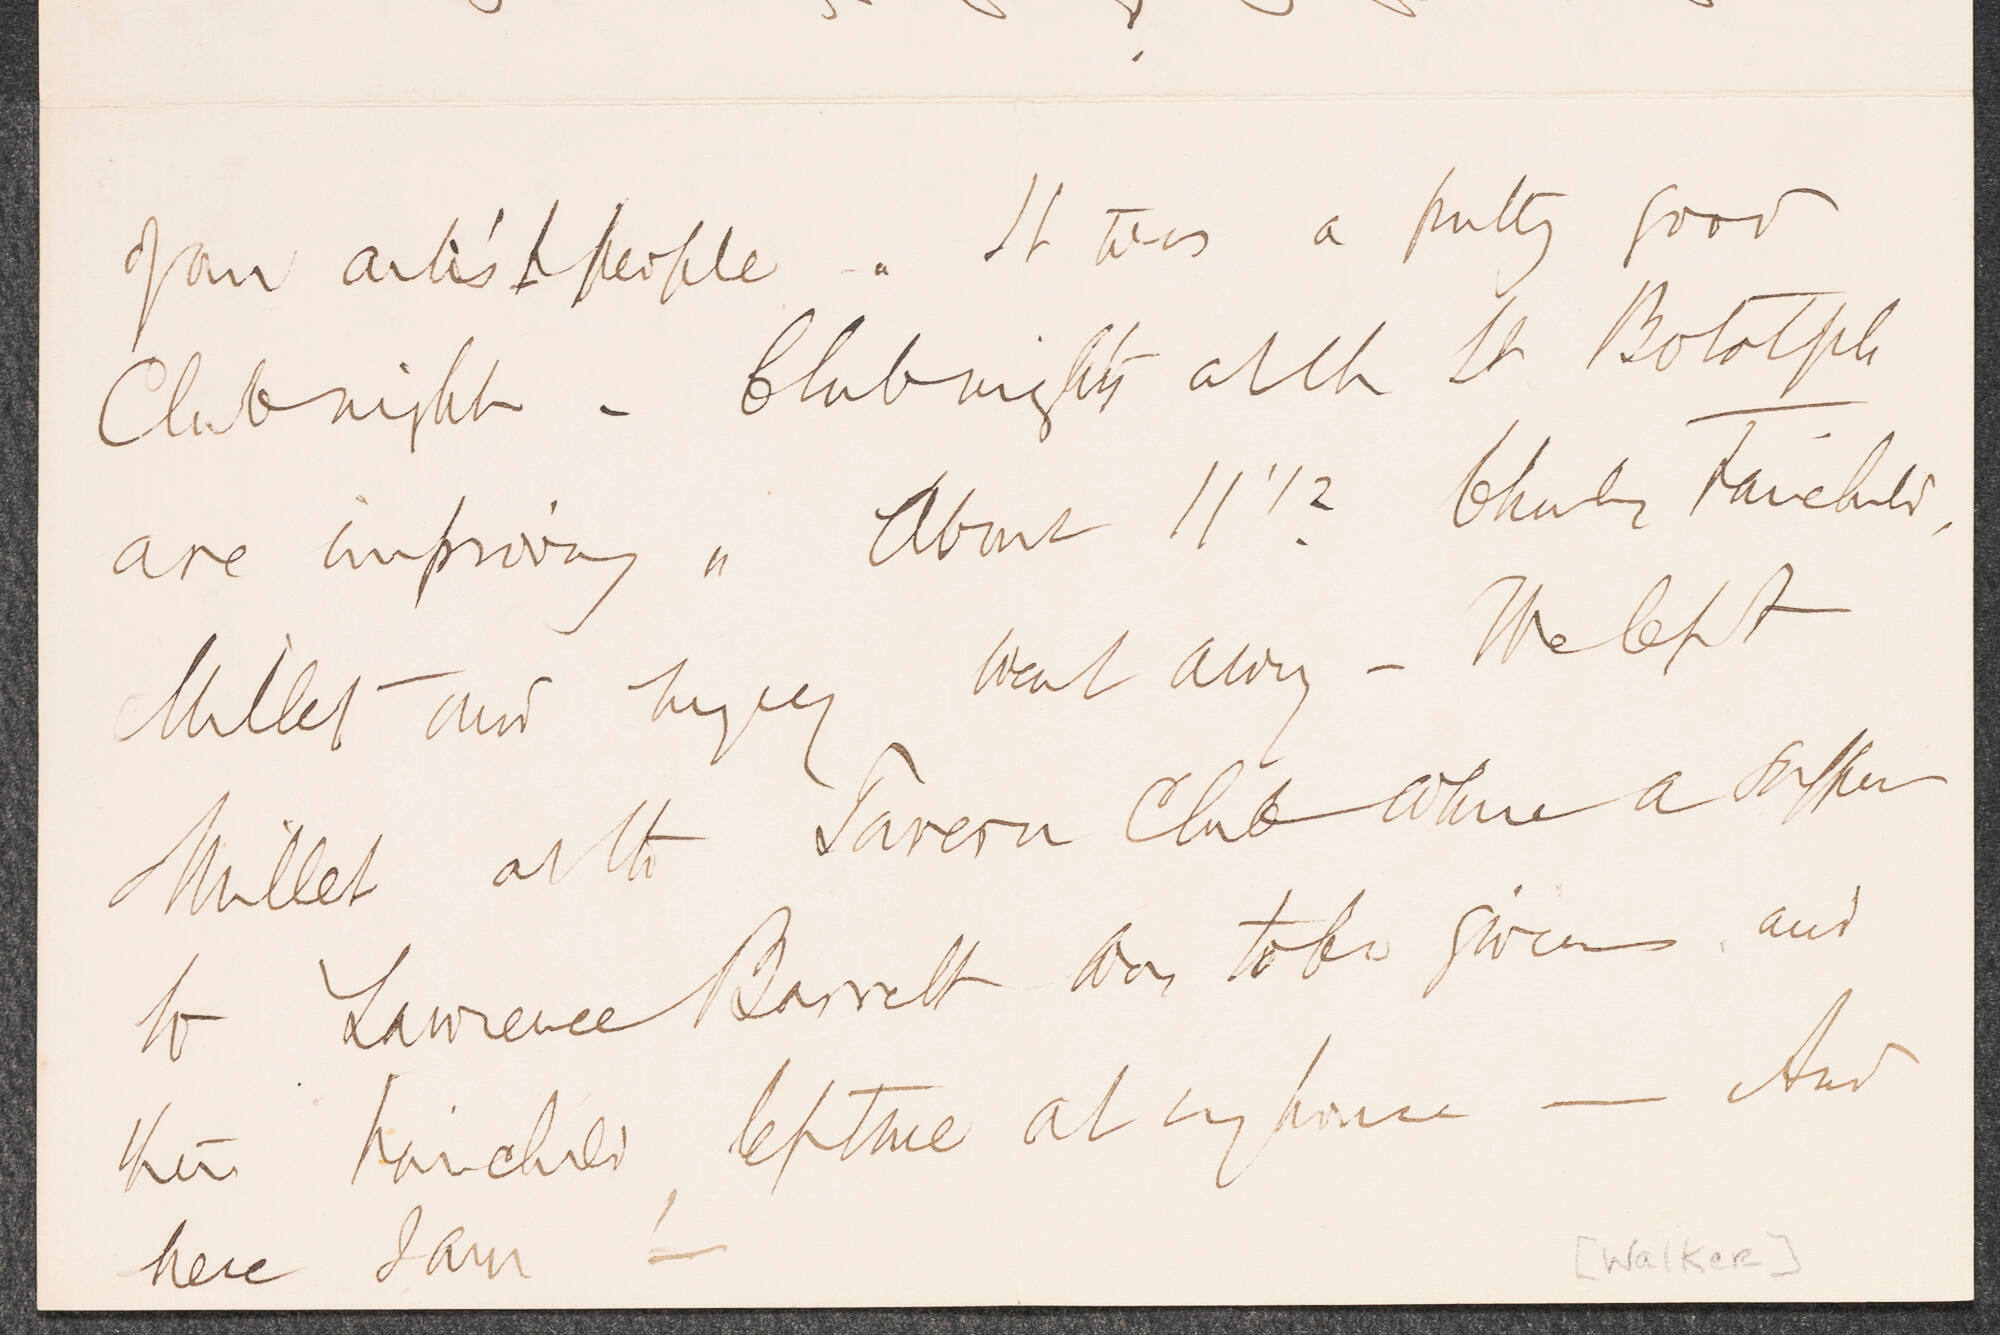 of our artist people. It was a pretty good
Club night - Club nights at the St Botolph
are improving. About 11 1/2 Charley Fairchild,
Millet and myself went away - We left
Millet at the Tavern Club where a supper
to Lawrence Barrett was to be given and
then Fairchild left me at my house — And
here I am!
[Walker]